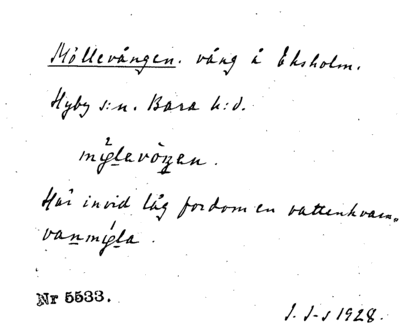 Möllevången. vång å Eksholm.
Hyby s:n. Bara h:d.
Här invid låg fordom en vattenkvarn,
Nr 5533.
1928.